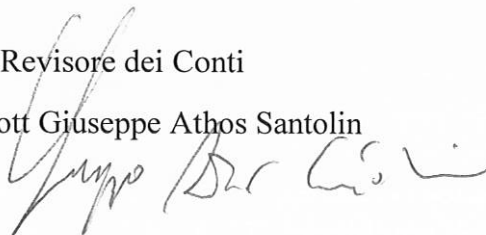 Revisore dei Conti
ott Giuseppe Athos Santolin